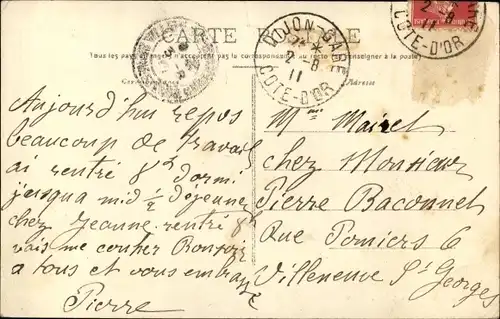 CARTE POSTALE
Tous les pays étrangers n'acceptent pas la correspondance au recto se renseigner à la poste
Correspondance
Adresse
DIJON-GARE
2 -8
11
COTE-D'OR
2 -8
11
COTE-D'OR
Aujourd'hui repos
beaucoup de travail
ai rentré 8h dormi
jusqua midi ½ déjeuné
chez Jeanne rentré 8h
vais me coucher Bonsoir
a tous et vous embrasse
Pierre
Mme Mairet
chez Monsieur
Pierre Baconnet
Rue Pomiers 6
Villeneuve St Georges